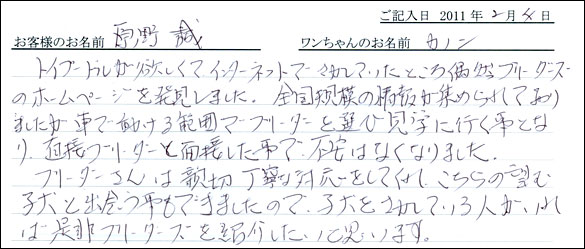 ご記入日 2011年2月4日
お客様のお名前 原野 誠 ワンちゃんのお名前 カノン
トイプードルが欲しくてインターネットでさがしていたところ偶然ブリーダーズ
のホームページを発見しました。全国規模の情報が集められており
ましたが車で動ける範囲でブリーダーを選び見学に行く事とな
り、直接ブリーダーと面接した事で、不安はなくなりました。
ブリーダーさんは親切丁寧な対応をしてくれ、こちらの望む
子犬と出会う事もできましたので、子犬をさがしている人がいれ
ば是非ブリーダーズを紹介したいと思います。